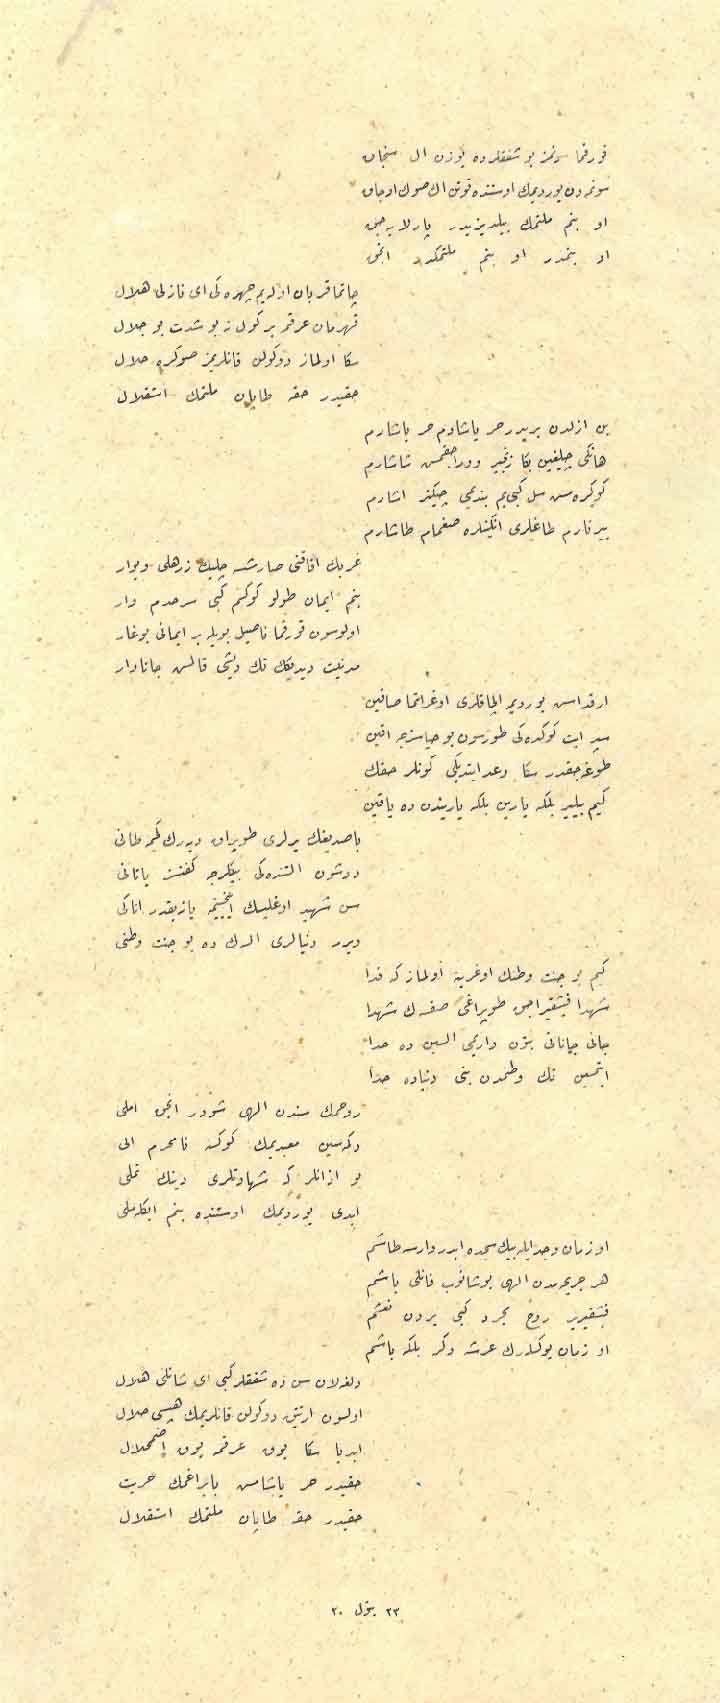 قورقما سونمز بو شفقلرده یوزن ال سنجاق
سونمه‌دن یوردیمك اوستنده توتن اك صوك اوجاق
او بنم ملتمك ییلدیزیدر پارلایه‌جق
او بنمدر او بنم ملتمكدر آنجق
چاتما قربان اوله‌یم چهره‌كی ای نازلی هلال
قهرمان عرقمه بر كول نه بو شدت بو جلال
سكا اولماز دوكولن قانلریمز صوكره حلال
حقیدر حقه طاپان ملتمك استقلال
بن ازلدن بریدر حر یاشادم حر یاشارم
هانكی چیلغین بكا زنجیر ووراجقمش شاشارم
كوكره‌مش سل كبی‌یم بندیمی چیكنر آشارم
ییرتارم طاغلری انكینلره صیغمام طاشارم
غربك آفاقنی صارمشسه چلیك زرهلی دیوار
بنم ایمان طولو كوكسم كبی سرحدم وار
اولوسون قورقما ناصیل بویله بر ایمانی بوغار
مدنیت دیدیكك تك دیشی قالمش جاناوار
آرقداش یوردیمه آلچاقلری اوغراتما صاقین
سپر ایت كوكده‌كی طورسون بو حیاسزجه آقین
طوغه‌جقدر سكا وعد ایتدیكی كونلر حقك
كیم بیلیر بلكه یارین بلكه یاریندن ده یاقین
باصدیغك یرلری طوپراق دیه‌رك كچمه طانی
دوشون آلتنده‌كی بیكلرجه كفنسز یاتانی
سن شهید اوغلیسك اینجیتمه یازیقدر آتاكی
ویرمه دنیالری آلسه‌ك ده بو جنت وطنی
كیم بو جنت وطنك اوغرینه اولماز كه فدا
شهدا فیشقیراجق طوپراغی صقسه‌ك شهدا
جانی جانانی بتون واریمی آلسین ده خدا
ایتمسین تك وطنمدن بنی دنیاده جدا
روحمك سندن الهی شودر آنجق املی
دكمه‌سین معبدیمك كوكسنه نامحرم الی
بو اذانلر كه شهادتلری دینك تملی
ابدی یوردیمك اوستنده بنم ایكله‌ملی
او زمان وجد ایله بیك سجده ایدر وارسه طاشم
هر جریحه‌مدن الهی بوشانوب قانلی یاشم
فیشقیریر روح مجرد كبی یردن نعشم
او زمان یوكسله‌رك عرشه دكر بلكه باشم
دالغه‌لان سن ده شفقلر كبی ای شانلی هلال
اولسون آرتق دوكولن قانلریمك هپسی حلال
ابدیا سكا یوق عرقمه یوق اضمحلال
حقیدر حر یاشامش بایراغمك حریت
حقیدر حقه طاپان ملتمك استقلال